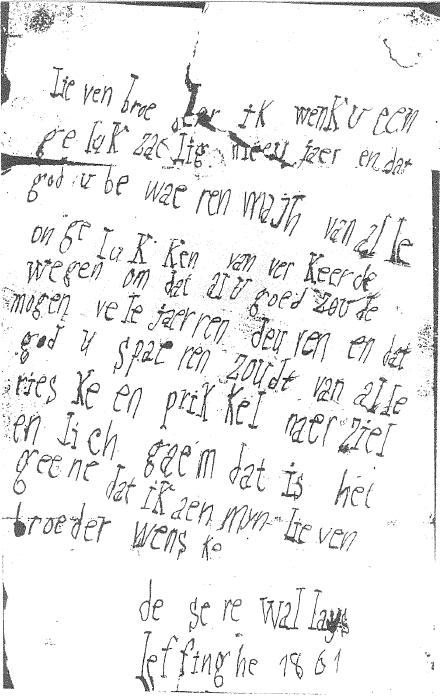 Lie ven broe der ik wenk u een
ge luk zae lig nieeu jaer en dat
god u be wae ren majh van al le
on ge luk ken van ver keerde
wegen om dat al u goed zou de
mogen ve le jaer ren deu ren en dat
god u spae ren zoudt van al de
ries ke en prik kel naer ziel
en lich gaem dat is het
geene dat ik aen myn lie ven
broeder wens ke
de se re wal lays
leffing he 1861